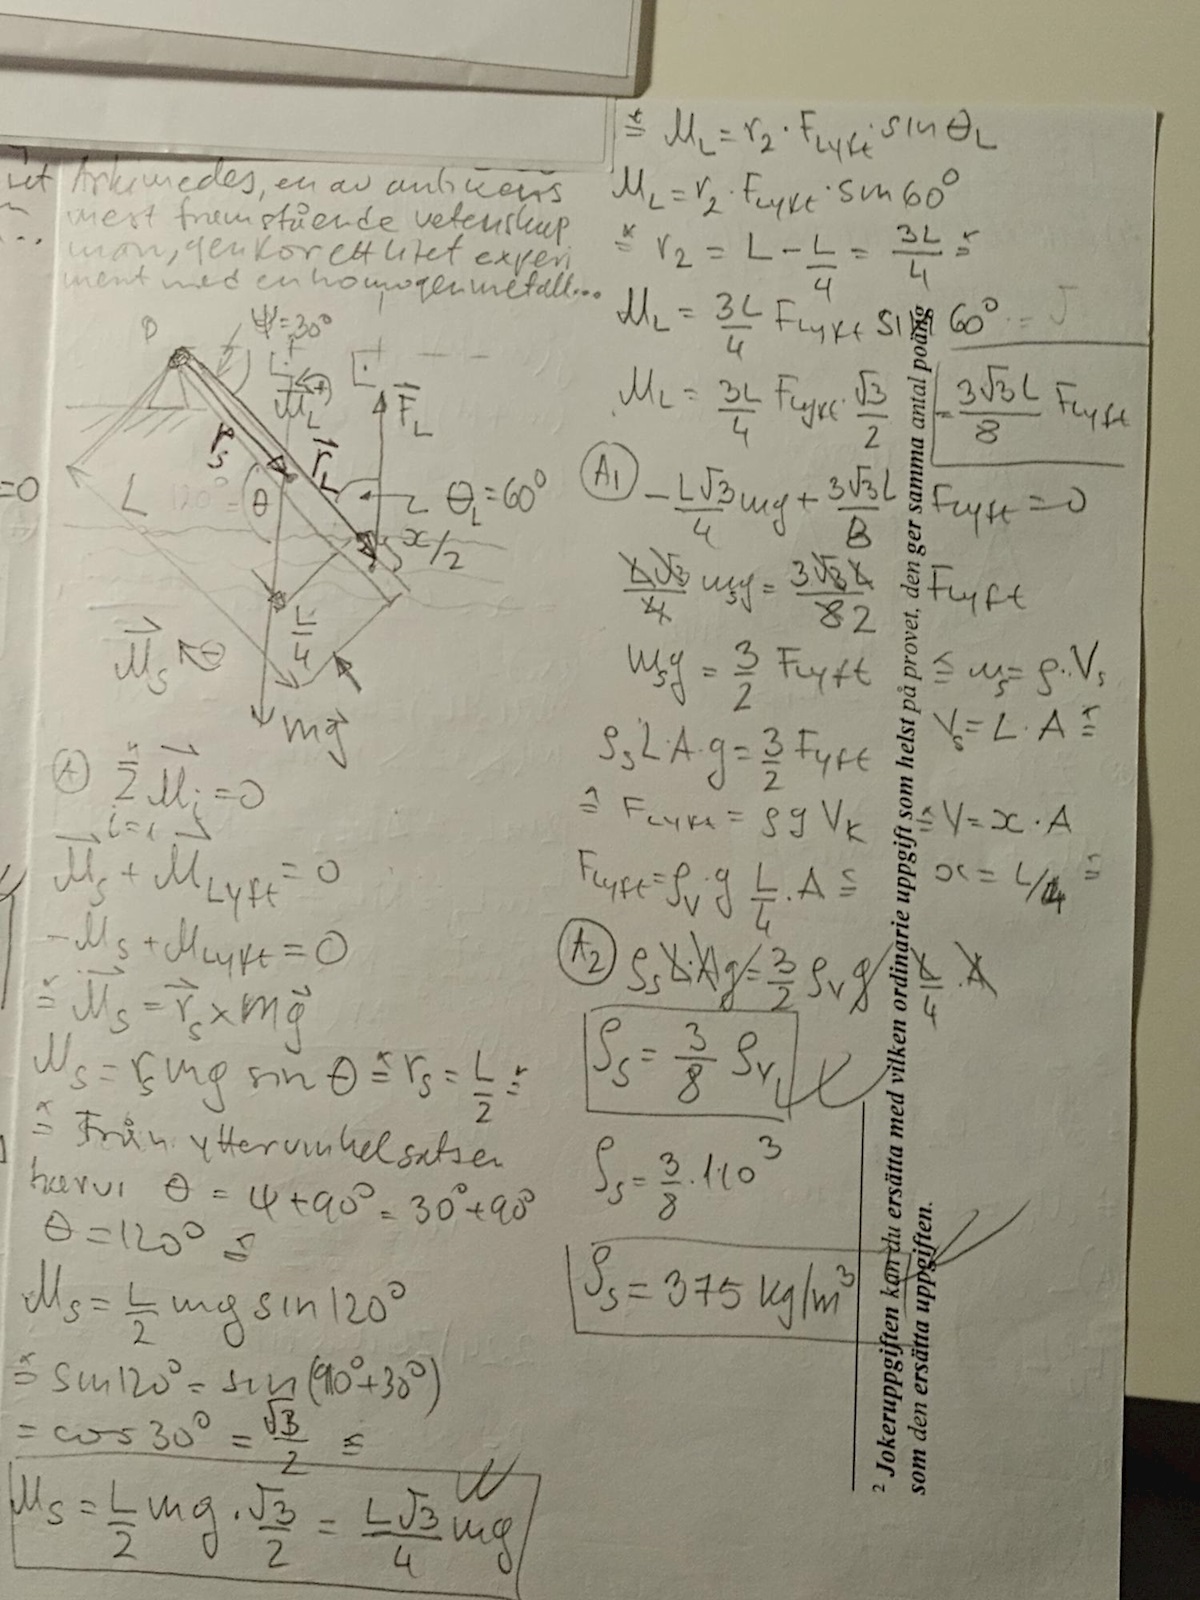 Arkimedes, en av antikens
mest framstående vetenskap
män, genkor ett litet experi
ment med en homogen metall...
=0
ψ=30°
L
θ
θ_L=60°
x/2
L/4
mg
(A) Σ M_i=0
i=1
M_s + M_Lyft = 0
-M_s + M_Lyft = 0
M_s = r_s × mg
M_s = r_s mg sin θ r_s = L/2
Från yttervinkelsatsen
θ = ψ+90° = 30°+90°
θ = 120°
M_s = L/2 mg sin 120°
sin 120° = sin (90°+30°)
= cos 30° = √3/2
M_s = L/2 mg · √3/2 = L√3/4 mg
M_L = r_2 · F_Lyft · sin θ_L
M_L = r_2 · F_Lyft · sin 60°
r_2 = L - L/4 = 3L/4
M_L = 3L/4 F_Lyft sin 60°
M_L = 3L/4 F_Lyft · √3/2 = 3√3L/8 F_Lyft
(A1) - L√3/4 mg + 3√3L/8 F_Lyft = 0
L√3/4 m_s g = 3√3L/8 2 F_Lyft
m_s g = 3/2 F_Lyft m_s = ρ · V_s
V_s = L · A
ρ_s L · A · g = 3/2 F_Lyft
F_Lyft = ρ g V_k V = x · A
F_Lyft = ρ_v · g L/4 · A x = L/4
(A2) ρ_s L · A g = 3/2 ρ_v g L/4 · A
ρ_s = 3/8 ρ_v
ρ_s = 3/8 · 1·10³
ρ_s = 375 kg/m³
² Jokeruppgiften kan du ersätta med vilken ordinarie uppgift som helst på provet, den ger samma antal poäng
som den ersätta uppgiften.